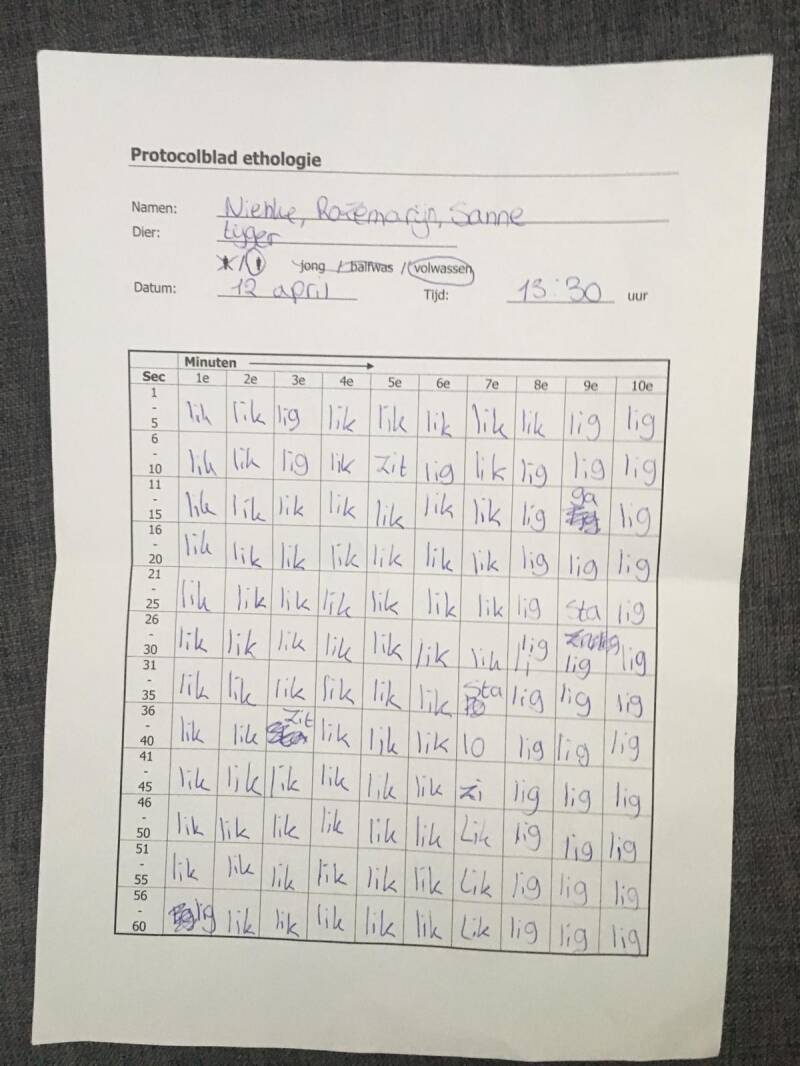 Protocolblad ethologie
Namen: Nienke, Rozemarijn, Sanne
Dier: tijger
jong / halfwas / volwassen
Datum: 12 april Tijd: 13:30 uur
Minuten
Sec 1e 2e 3e 4e 5e 6e 7e 8e 9e 10e
1 - 5 lik lik lig lik lik lik lik lik lig lig
6 - 10 lik lik lig lik zit lig lik lig lig lig
11 - 15 lik lik lik lik lik lik lik lig ga lig
16 - 20 lik lik lik lik lik lik lik lig lig lig
21 - 25 lik lik lik lik lik lik lik lig sta lig
26 - 30 lik lik lik lik lik lik lik lig lig lig
31 - 35 lik lik lik lik lik lik sta lig lig lig
36 - 40 lik lik zit lik lik lik lo lig lig lig
41 - 45 lik lik lik lik lik lik zi lig lig lig
46 - 50 lik lik lik lik lik lik Lik lig lig lig
51 - 55 lik lik lik lik lik lik Lik lig lig lig
56 - 60 lig lik lik lik lik lik Lik lig lig lig